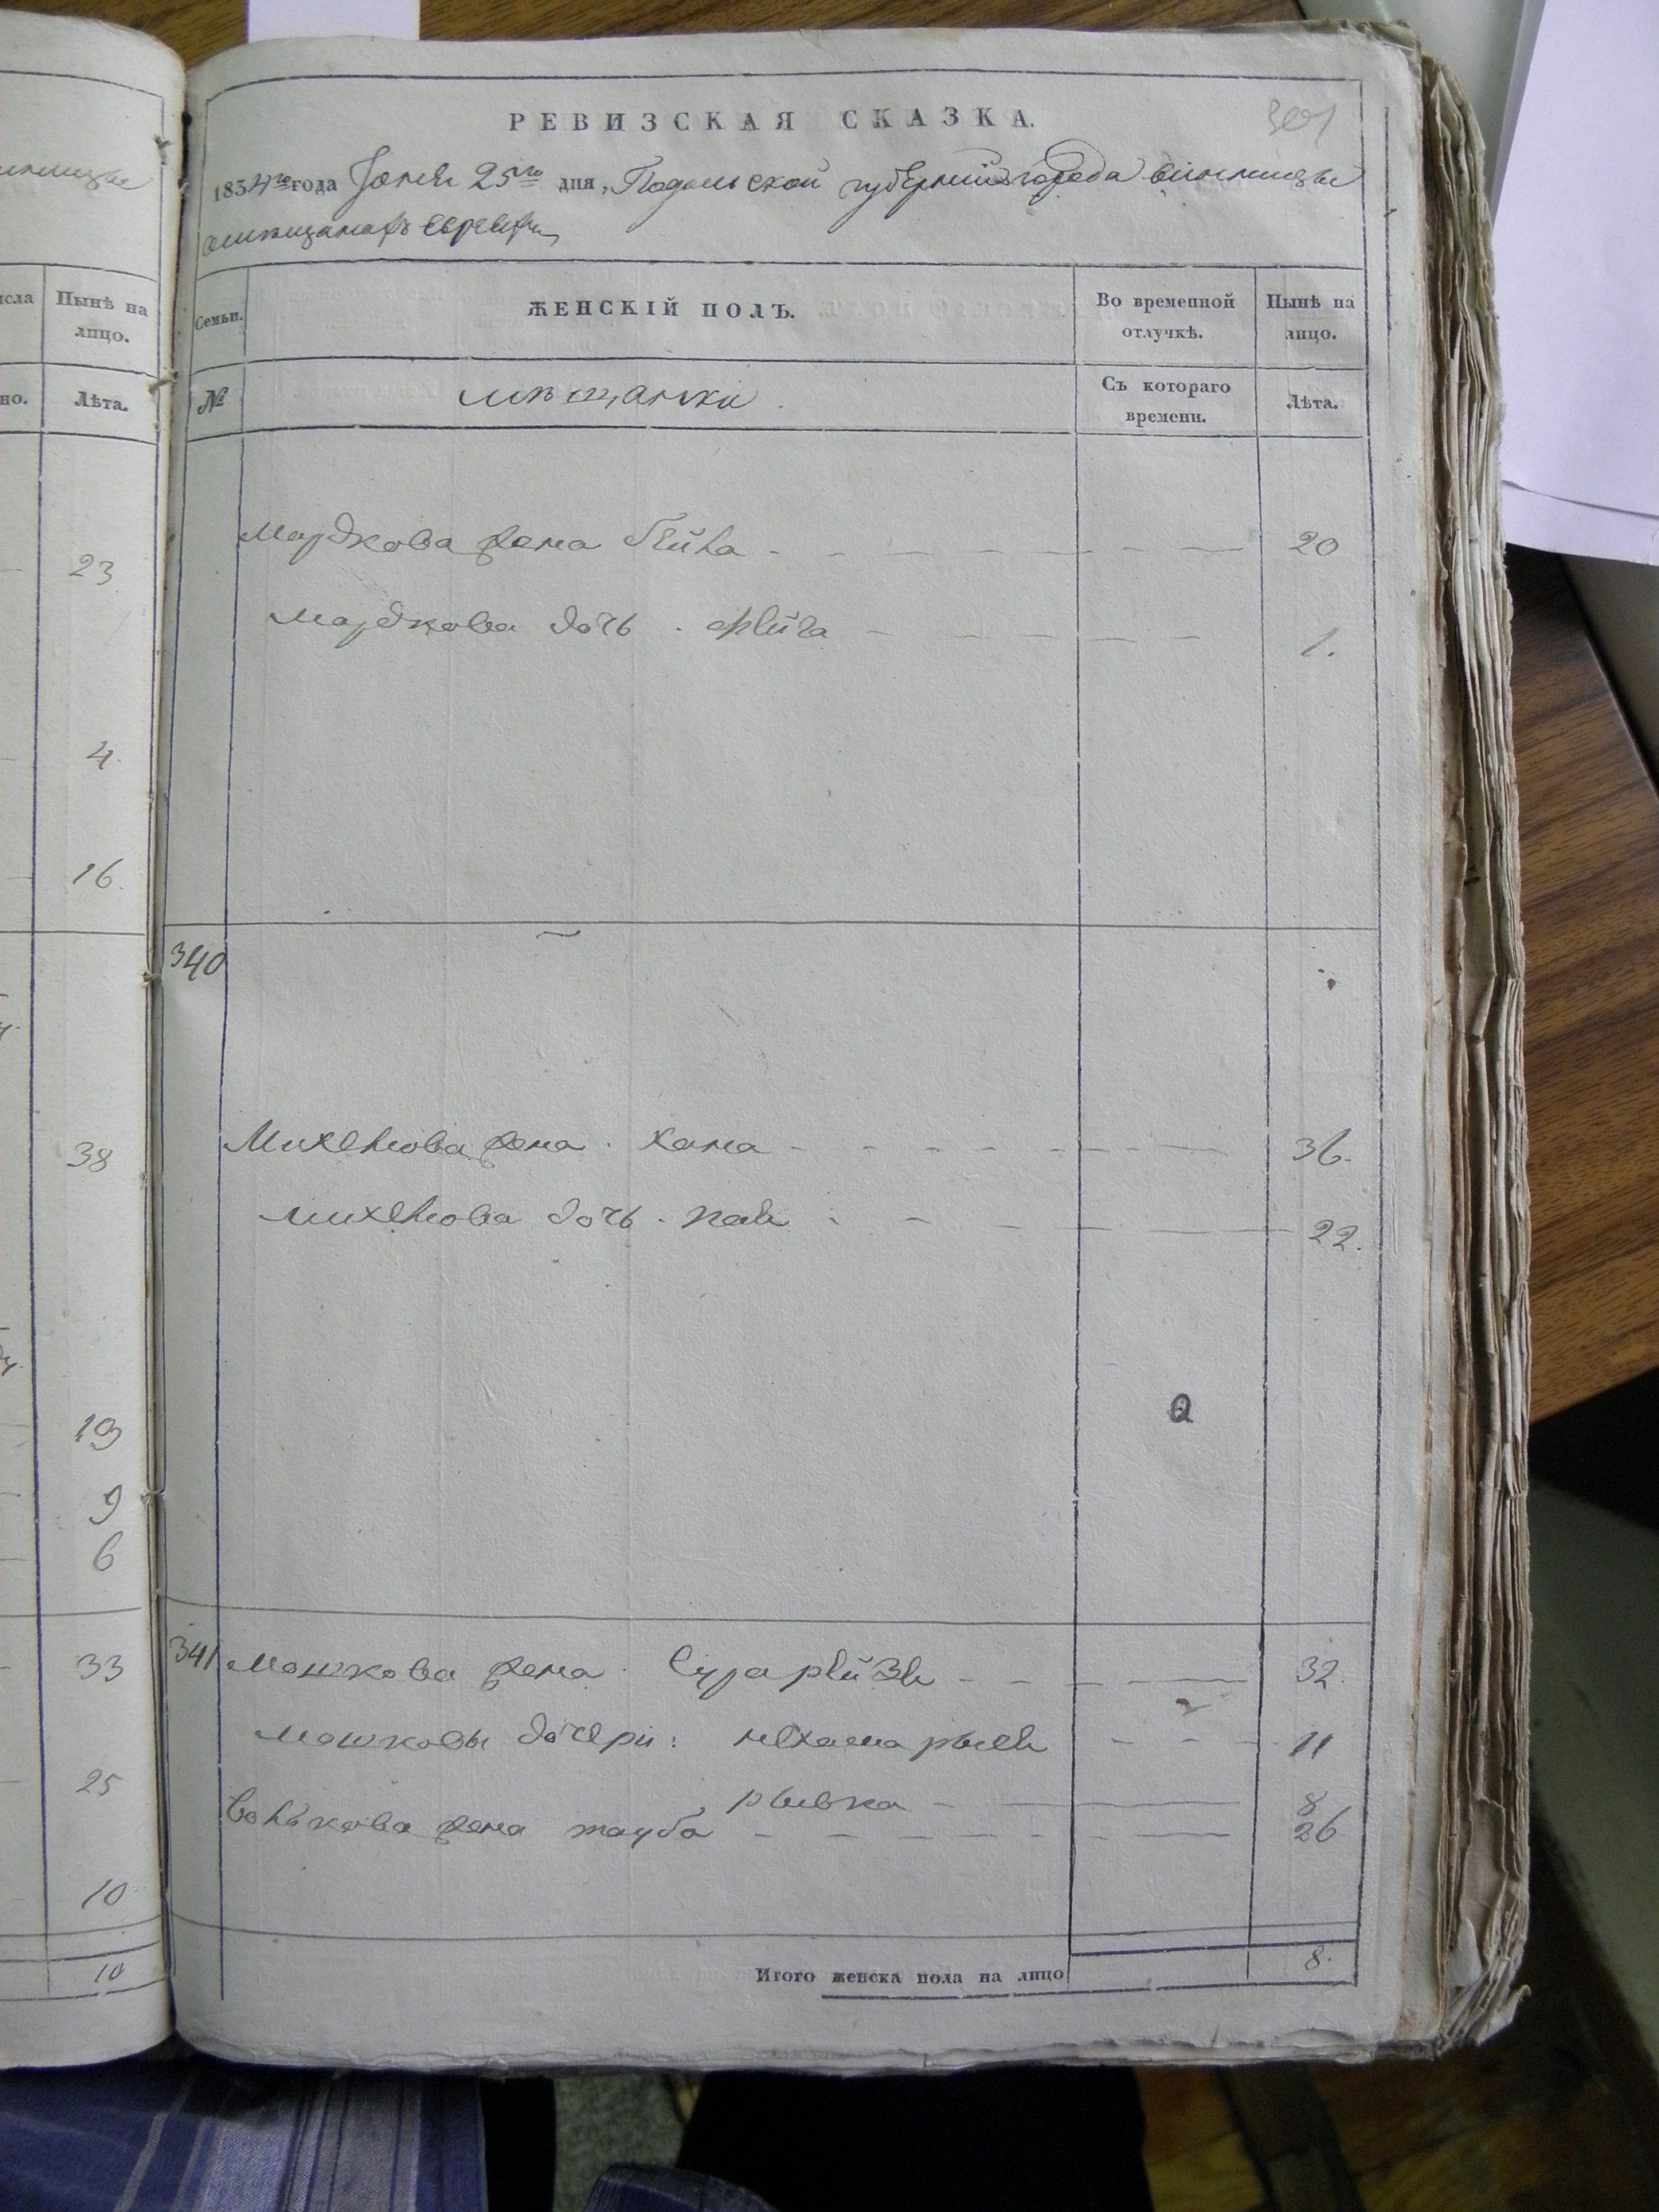 23
4
16
38
19
9
6
33
25
10
10
исла
Нынѣ на
лицо.
но.
Лѣта.
РЕВИЗСКАЯ СКАЗКА.
1834го года Іюня 25го дня, Подольской губерніи города винницы
мѣщанахъ евреяхъ
Семьи.
ЖЕНСКІЙ ПОЛЪ.
Во временной
отлучкѣ.
Нынѣ на
лицо.
№
мѣщанки
Съ котораго
времени.
Лѣта.
Мардкова жена бейла 20
Мардкова дочь фейга 1.
340
Михелова жена хана 36.
михелова дочь 22.
341 мошкова жена Сура рейзя 32.
мошковы дочери: нехама 11
рывка 8
Волькова жена тауба 26
Итого женска пола на лицо 8.